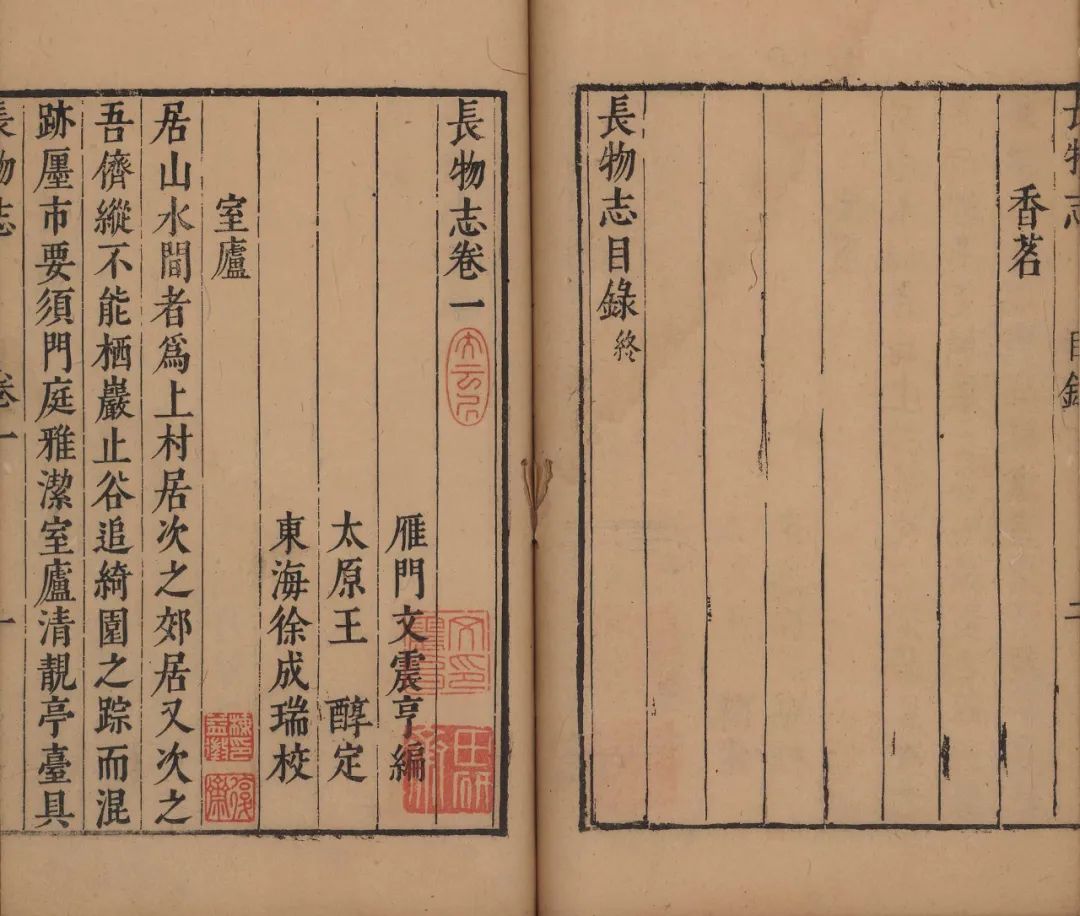 長物志
目錄
二
香茗
長物志目錄終
長物志卷一
雁門文震亨編
太原王 醇定
東海徐成瑞校
室廬
居山水間者爲上村居次之郊居又次之
吾儕縱不能栖巖止谷追綺園之踪而混
跡廛市要須門庭雅潔室廬清靚亭臺具
長物志
卷一
一